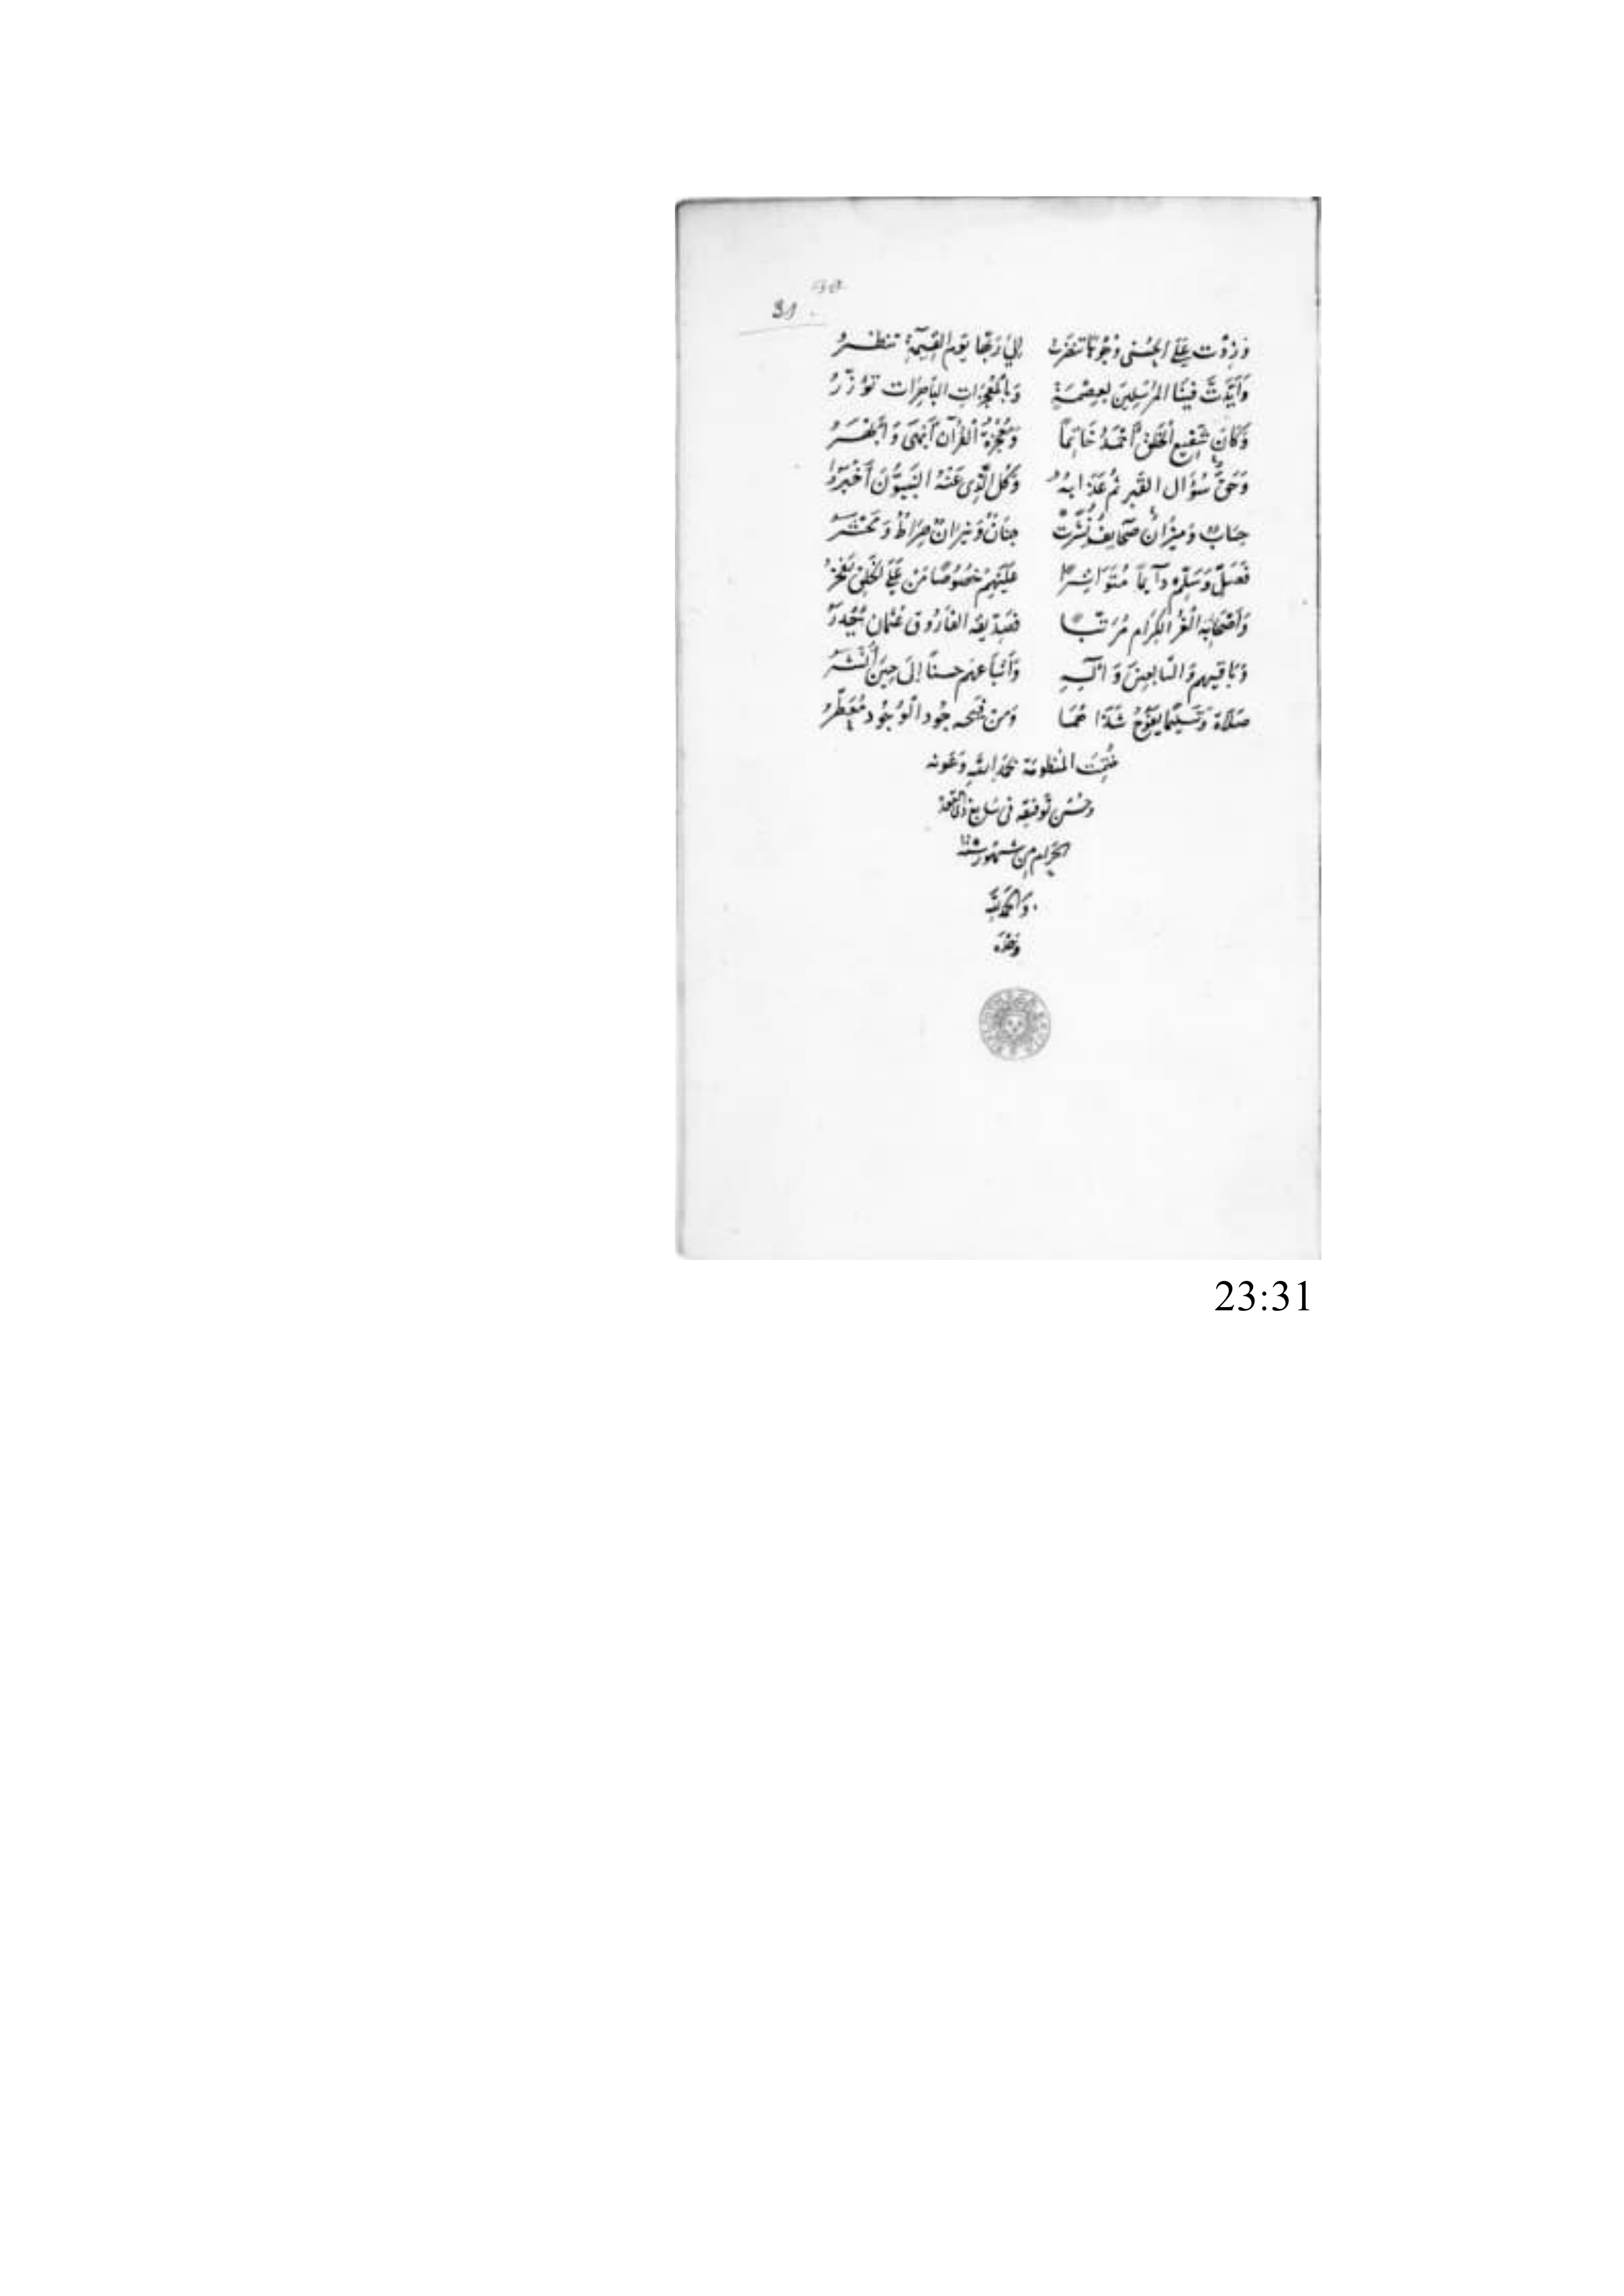 31
وَزِدْتَ عَلَى الحُسْنَى وُجُوهًا تنضرت إلى رَبِّهَا يَوْمَ القِيمَةِ تنظرُ
وَأَيَّدْتَ فِينَا المُرْسَلِينَ بعِصْمَةٍ وَبالمُعْجِزَاتِ البَاهِرَات تؤزّرُ
وَكَانَ شَفِيع الْخَلْقِ أَحْمَدُ خَاتِمًا وَمُعْجِزَةُ القُرْآنِ أَبْهَى وَأَبْهَرُ
وَحَقٌّ سُؤَال القَبرِ ثُم عَذَابهُ وَكُل الَّذِى عَنْهُ النَّبِيُّونَ أَخْبَرُوا
حِسَابٌ وَمِيزَانٌ صَحَايِفُ نُشِّرَتْ جِنَانٌ وَنِيرَانٌ صِرَاطٌ وَمَحْشَرُ
فَصَلِّ وَسَلِّم دَآيِمًا مُتَوَاتِرًا عَلَيْهِم خصُوصًا مَنْ عَلَى الخَلْقِ يَفْخَرُ
وَأَصْحَابِهِ الْغُرِّ الكِرَامِ مُرَتّبًا فصدّيقه الفَارُوق عُثْمان حَيْدَرُ
وَبَاقِيهم وَالتَّابعِينَ وَآلِهِ وَأتْبَاعهم حسنًا إلَى حِينَ أُنْشَرُ
صَلَاة وَتَسْلِيمًا يفُوْحُ شَذَا هُمَا وَمِنْ فَيْحِه جُود الْوُجُود مُعَطَّرُ
خُتِمَت المنظومَة بحَمْدِ اللَّهِ وَعَونه
وحُسْن توفيقه فى سَلخ ذى القعدة
الحَرام مِن شُهُور سنة
وَالحَمْدُ للهِ
وَحْدَه
23:31